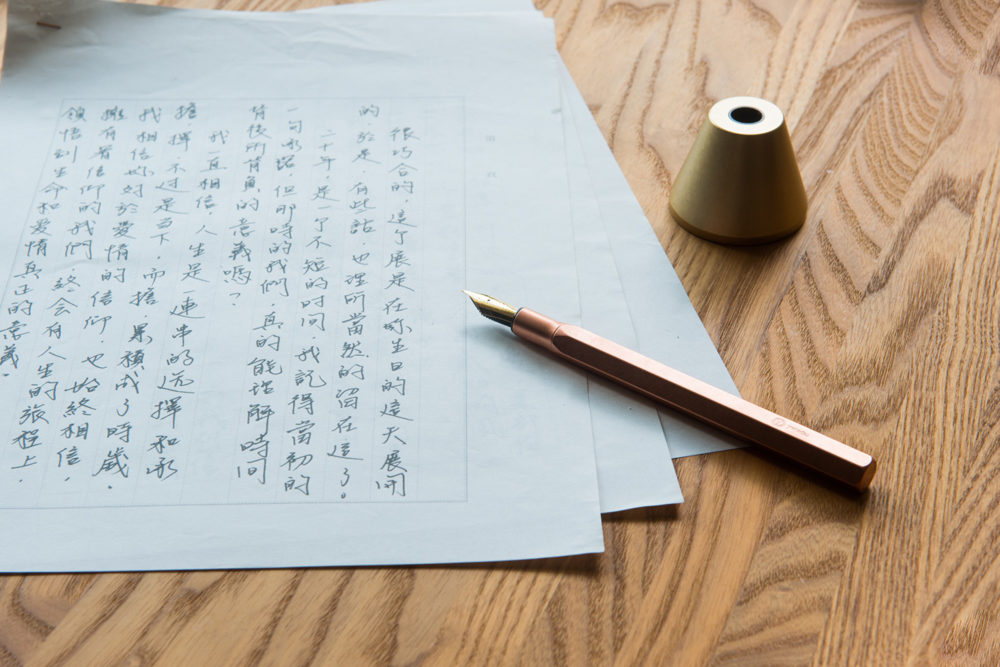 很巧合的，這个展是在你生日的這天展開
的，於是，有些話，也理所當然的留在這了。
二十年，是一个不短的时间，我記得當初的
一句承諾，但那時的我們，真的能理解時間
背後所背負的意義嗎？
我一直相信，人生是一連串的选擇和承
擔，擇，不过是当下，而擔，累積成了時歲．
我相信你对於愛情的信仰，也始終相信，
擁有着信仰的我們，終会有人生的旅程上，
領悟到生命和愛情真正的意義．